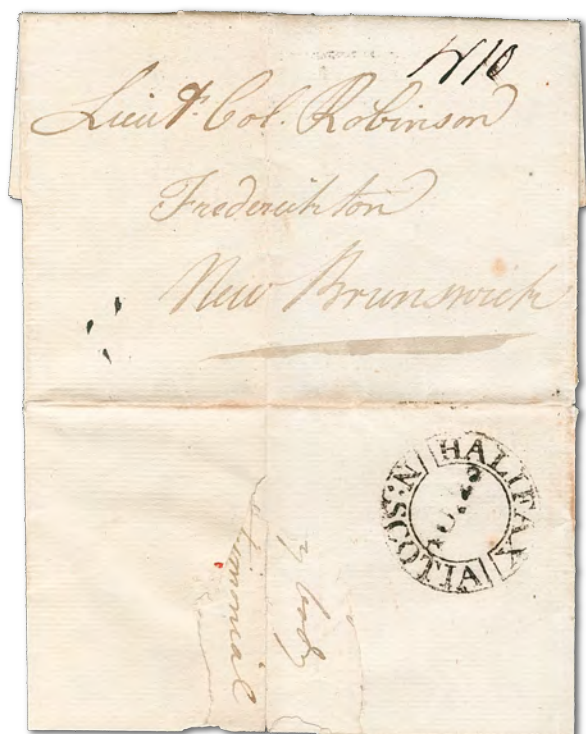 N/10
Lieut. Col. Robinson
Frederickton
New Brunswick
HALIFAX
N:SCOTIA